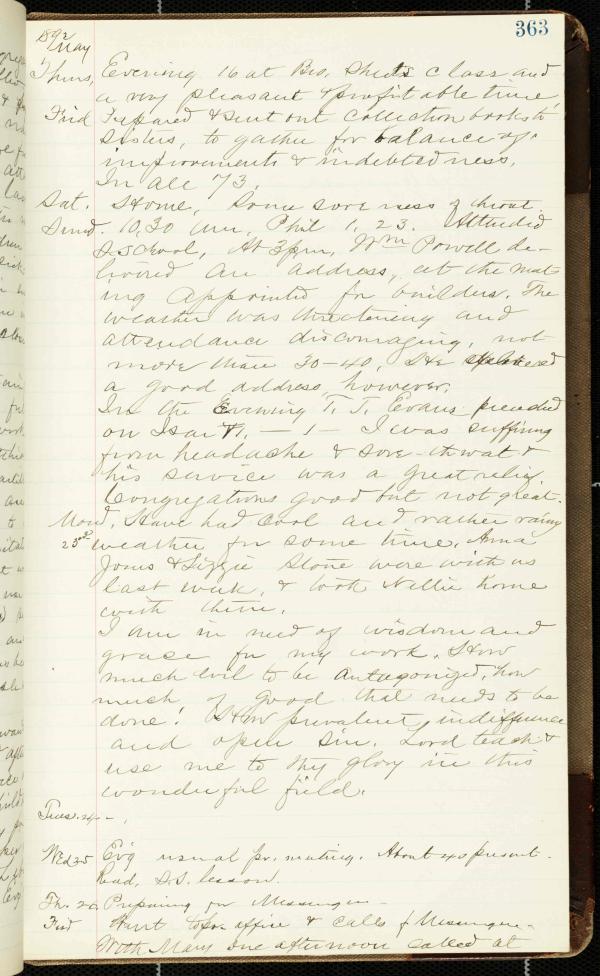 363
1892
May
Thurs, Evening 16 at Bro. class and
a very pleasant & profitable time
Frid Prepared & sent out collection books to
sisters, to gather for balance of
improvements & indebtedness.
In all 73.
Sat. Home, Some soreness of throat.
Sund. 10,30 am, Phil 1, 23. Attended
S School, At 3 pm, Wm Powell de-
livered an address, at the meet
ing appointed for builders. The
weather was threatening and
attendance discouraging, not
more than 30-40, He delivered
a good address, however.
In the Evening T. J. Evans preached
on Isai - 1 - I was suffering
from headache & sore-throat &
his service was a great relief.
Congregations good but not great.
Mond, Have had cool and rather rainy
23rd weather for some time. Anna
Jones & Lizzie Stone were with us
last week, & took Nellie home
with them.
I am in need of wisdom and
grace for my work. How
much evil to be antagonized, how
much of good that needs to be
done! How prevalent, indifference
and open sin. Lord teach &
use me to thy glory in this
wonderful field.
Tues. 24 - ,
Wed 25 Ev'g usual pr. meeting. About 40 present.
Read, S.S. lesson.
Th. 26 Preparing for Messenger -
Frid Went to office & calls f Messenger -
With Mary one afternoon called at